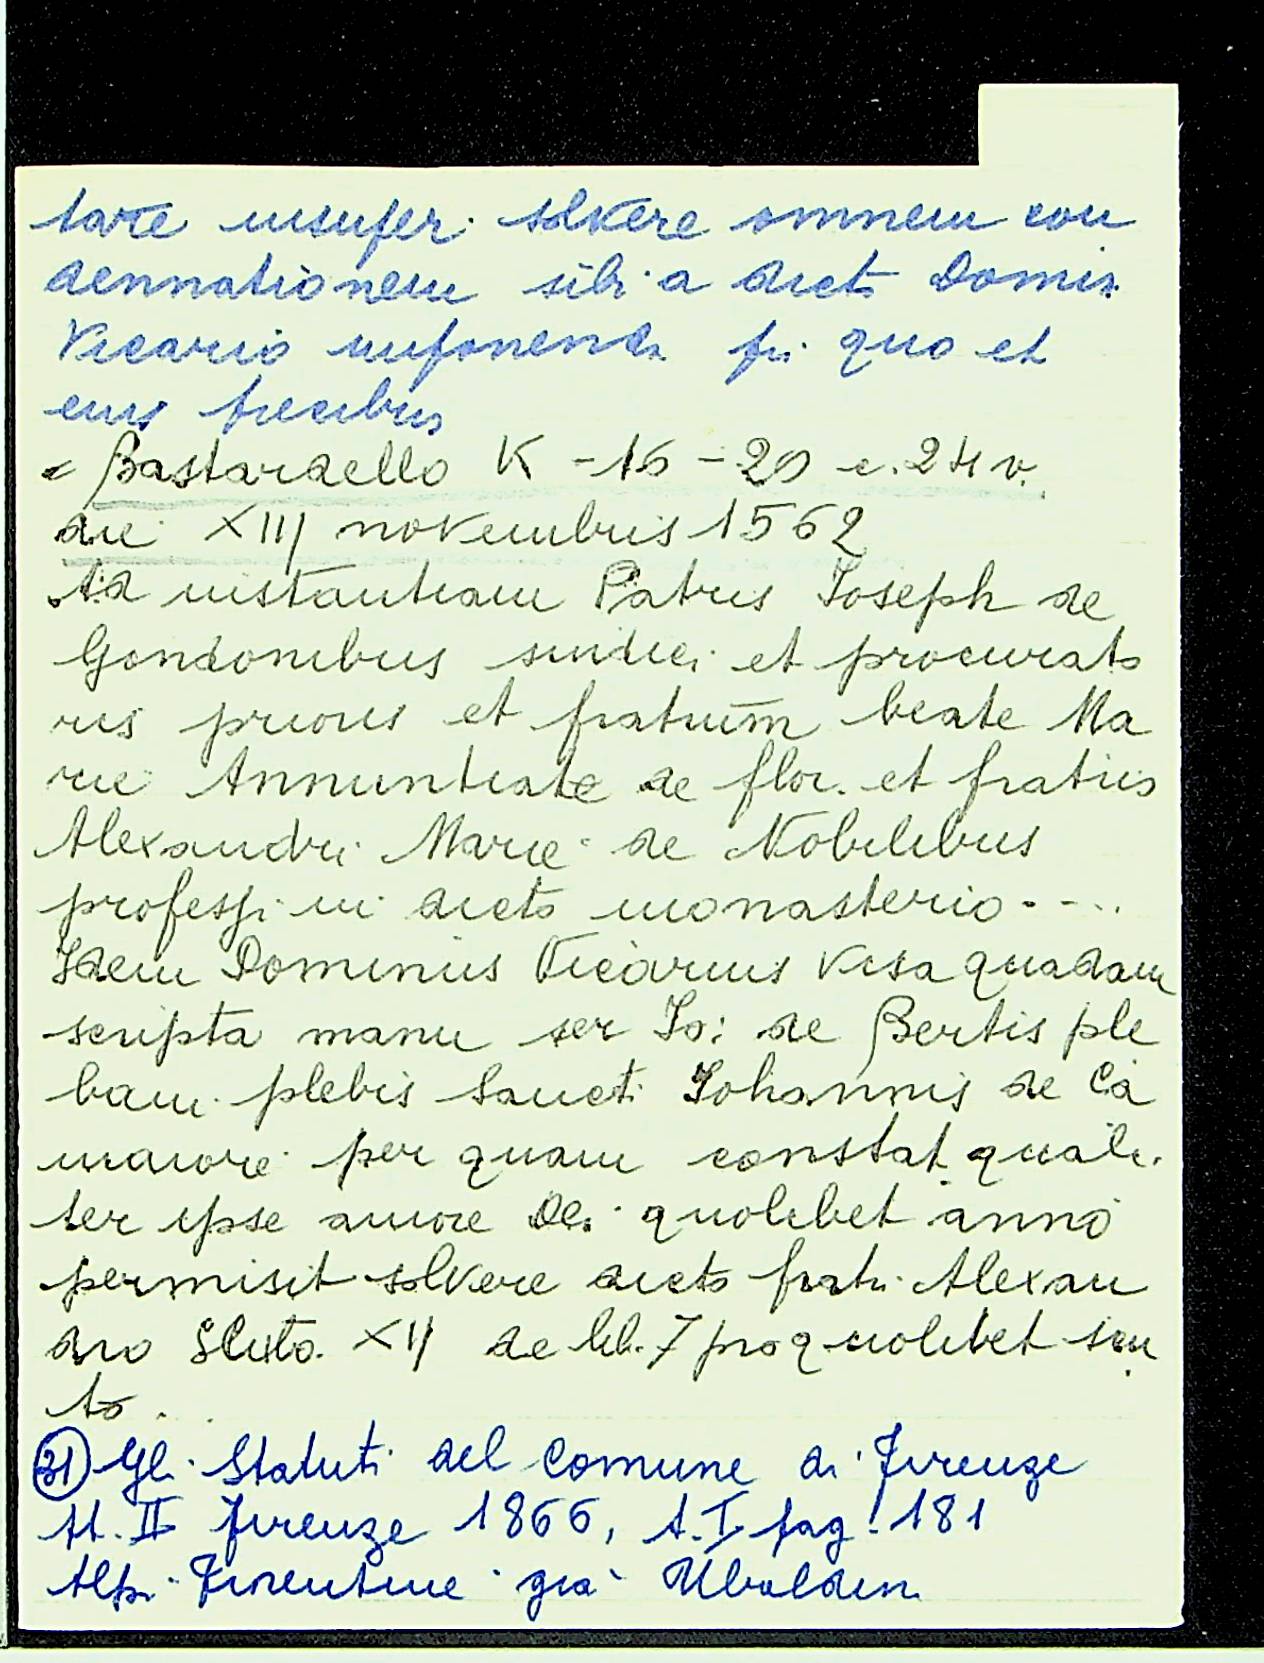 tare insuper solvere omnem con
dennationem sibi a dicto Domin.
Vicario imponenda pri quo et
eius precibus
= Bastardello K - 16 - 20 c. 24 v.
die XIII novembris 1562
Ad instantiam Patris Joseph de
Gondonibus sindici et procurato
ris prioris et fratrum beate Ma
rie Annuntiate de flor. et fratris
Alexandri Marie de Nobilibus
professi in dicto monasterio ....
Idem Dominus Vicarius visa quadam
scripta manu ser Io: de Bertis ple
bani plebis Sancti Johannis de Ca
maiore per quam constat quali.
ter ipse amore Dei quolibet anno
permisit solvere dicto fratri Alexan
dro Scuto XII de lib. 7 pro quolibet scu
to ...
(31) Gli Statuti del Comune di Firenze
II Firenze 1866, t. I, pag. 181
Alpi Fiorentine già Ubaldin.